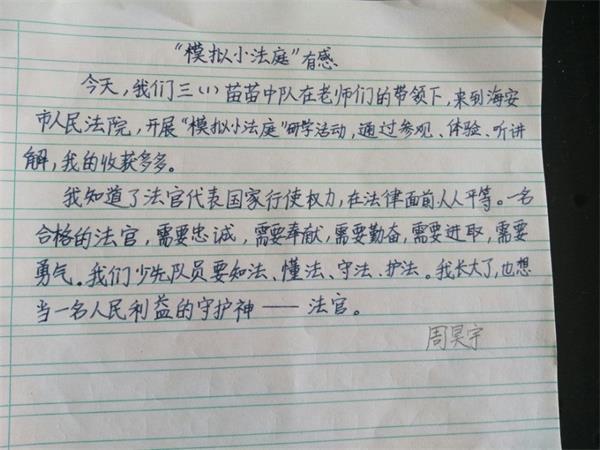 “模拟小法庭”有感
今天，我们三（1）苗苗中队在老师们的带领下，来到海安
市人民法院，开展“模拟小法庭”研学活动，通过参观、体验、听讲
解，我的收获多多。
我知道了法官代表国家行使权力，在法律面前人人平等。一名
合格的法官，需要忠诚，需要奉献，需要勤奋，需要进取，需要
勇气。我们少先队员要知法、懂法、守法、护法。我长大了，也想
当一名人民利益的守护神——法官。
周昊宇